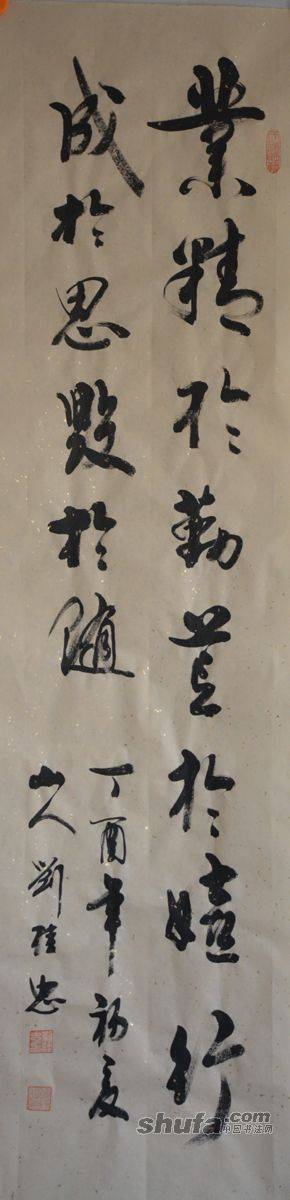 業精於勤荒於嬉行
成於思毀於隨
丁酉年初夏
山人劉維忠
shufa.com
中国书法网